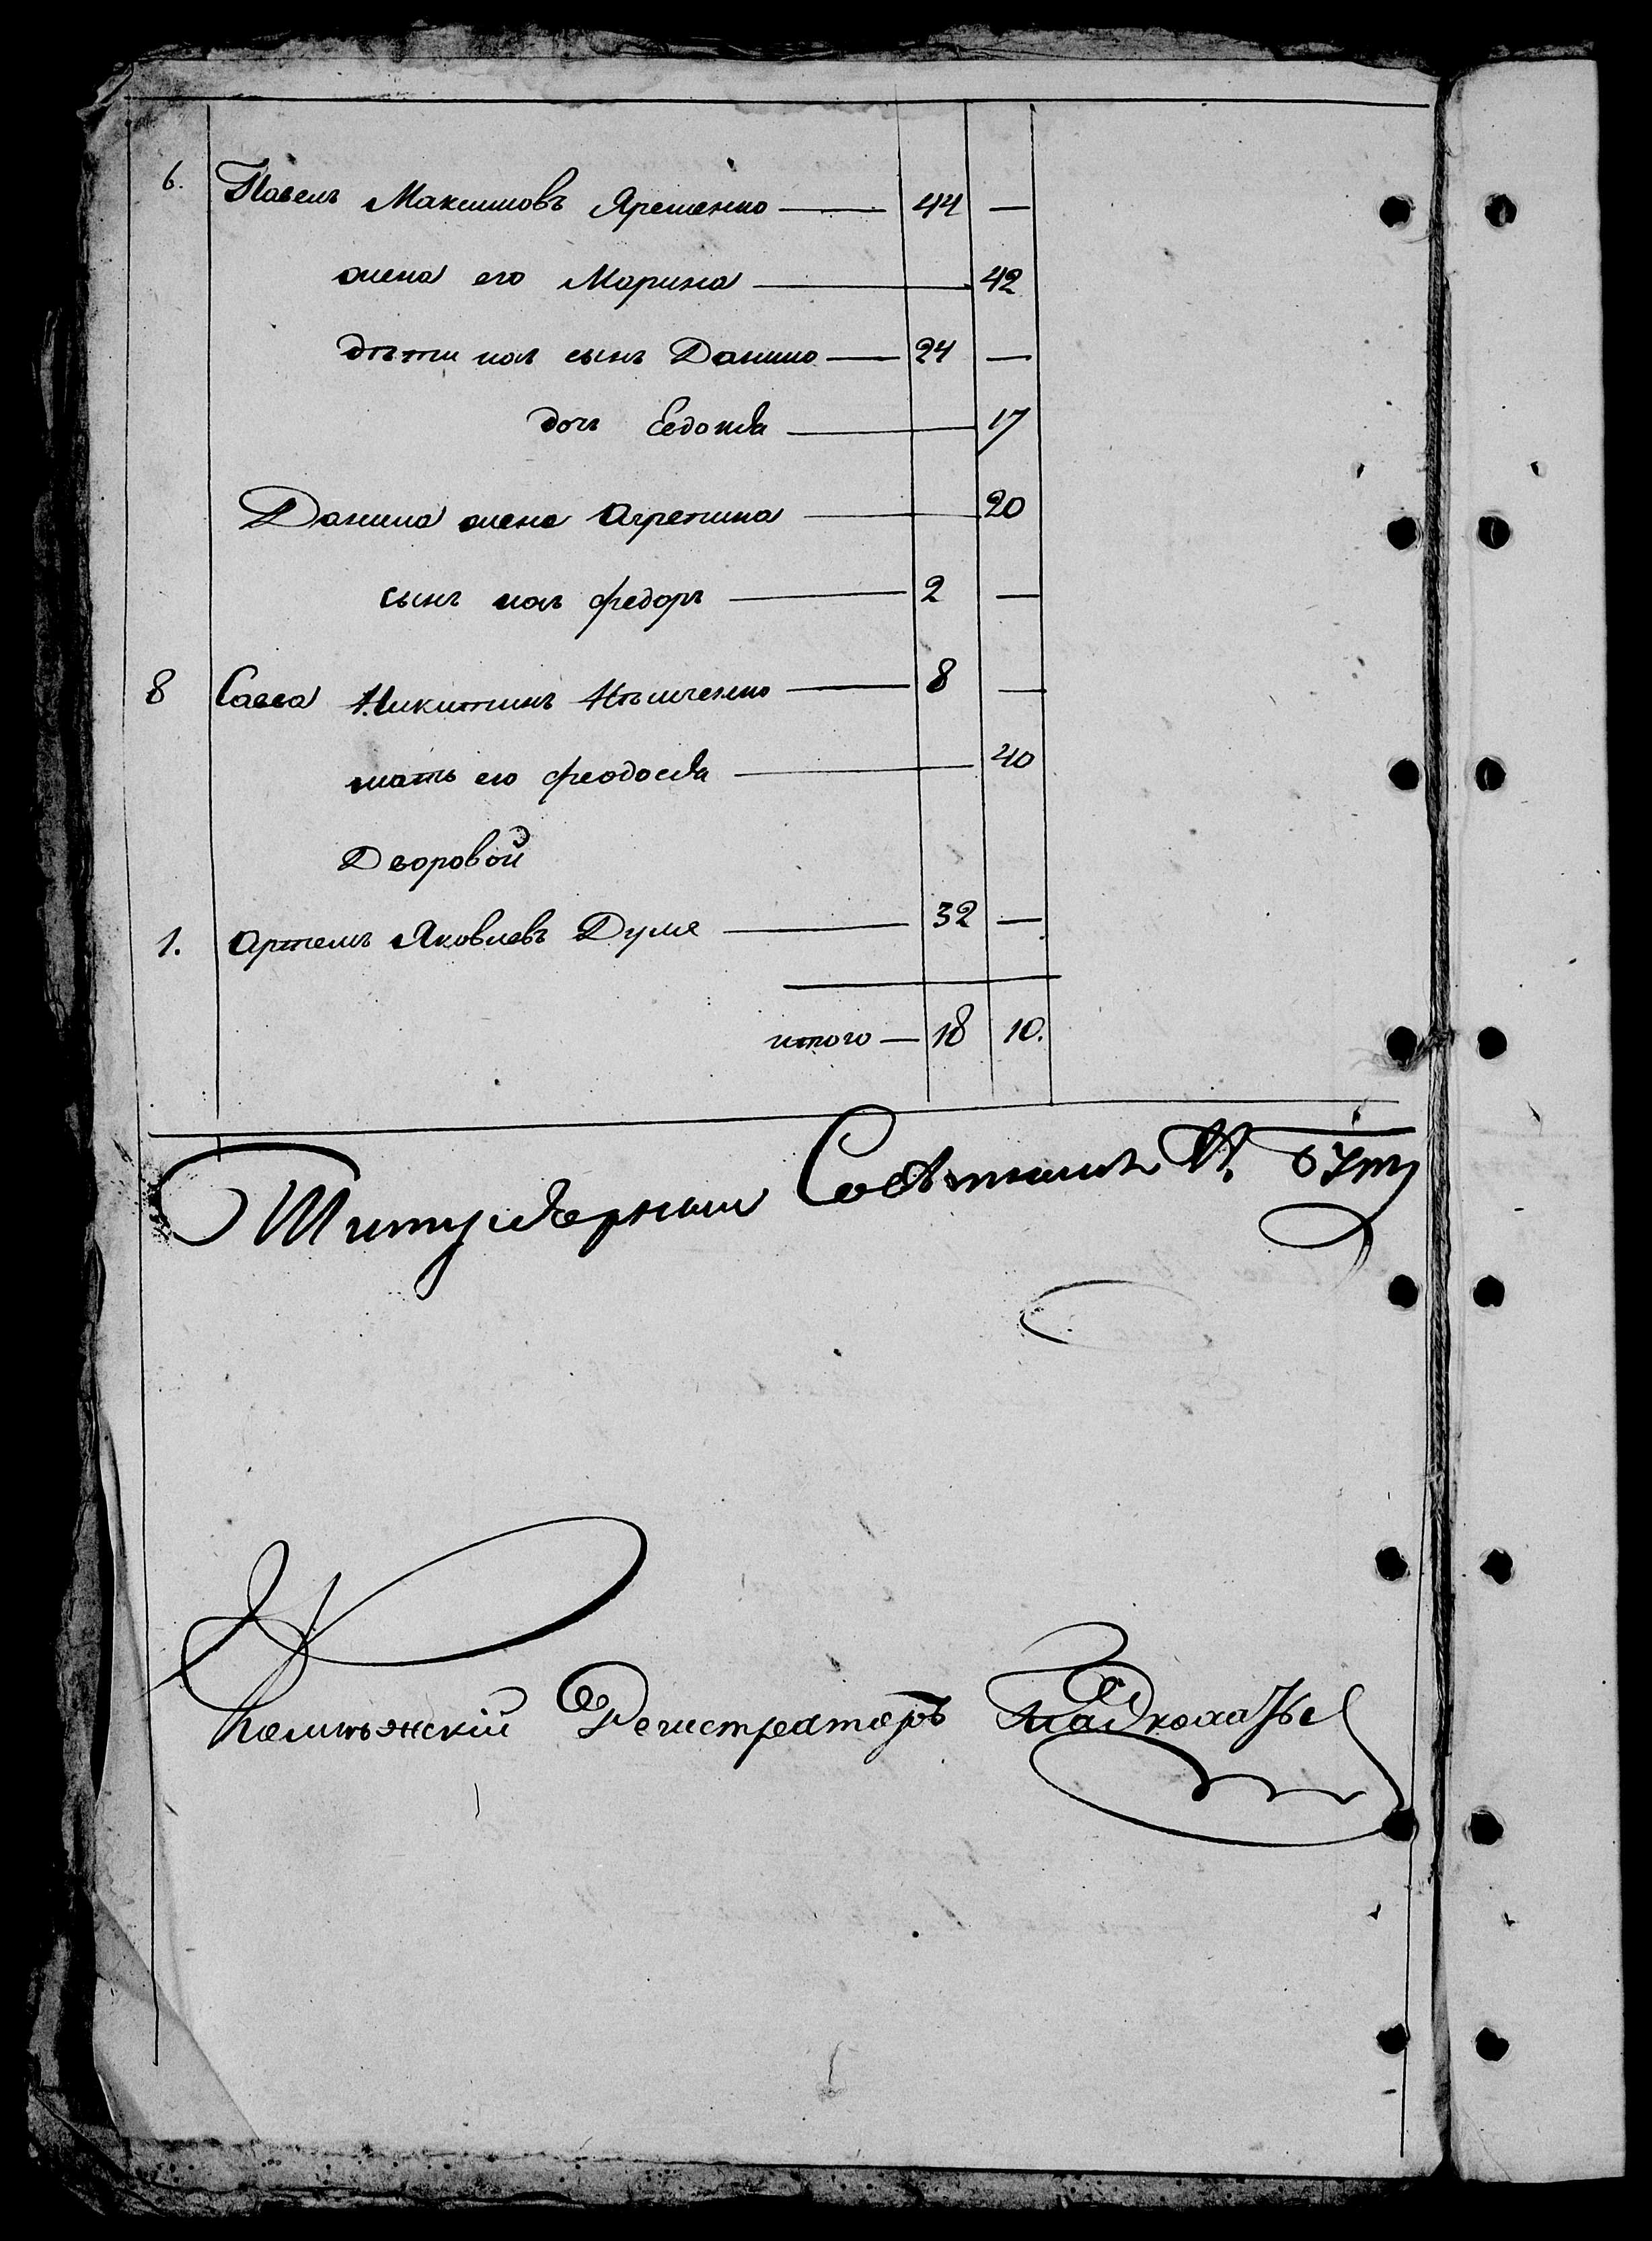 6. Павелъ Максимовъ Ярешенко — 44 —
жена его Марина — 42
дѣти ихъ сынъ Данило — 24 —
дочь Евдокія — 17
Данила жена Агрепина — 20
сынъ ихъ Федоръ — 2 —
8 Савва Никитинъ — 8 —
мать его Феодосія — 40
Дворовой
1. Артемъ Яковлевъ Дуля — 32 —
итого — 18 10.
Титулярный Совѣтникъ
Колежскій Регистраторъ